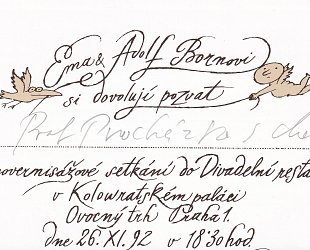 Ema & Adolf Bornovi
si dovolují pozvat
Prof Procházka s
overnisážové setkání do Divadelní resta
v Kolowratském paláci
Ovocný trh Praha 1.
dne 26. XI. 92 v 18'30 hod.